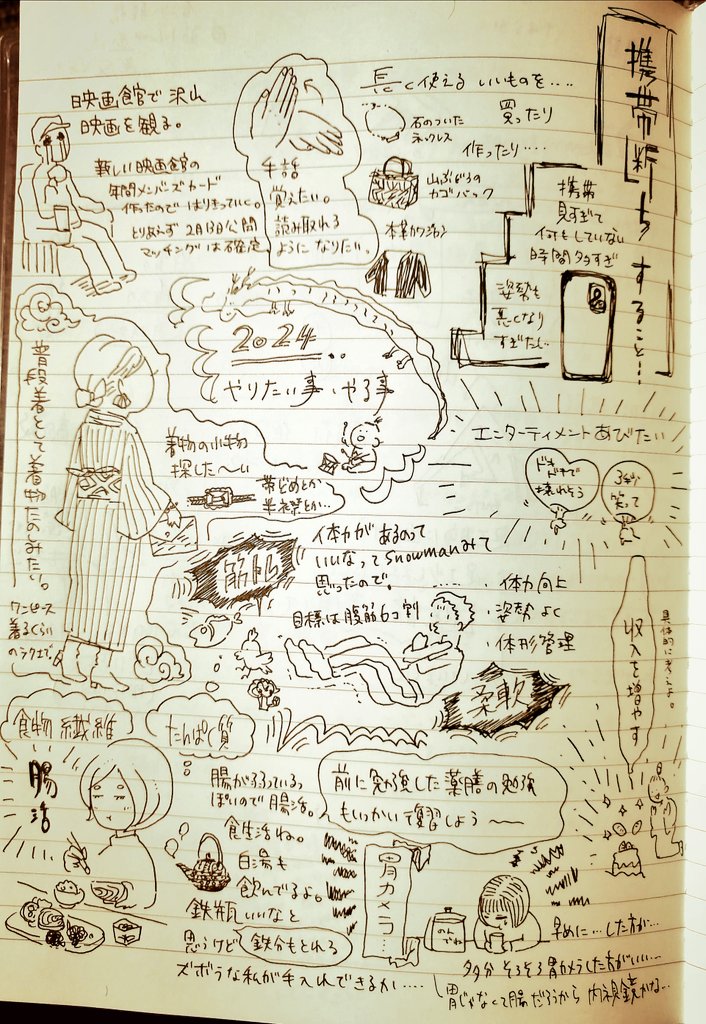 携帯断ちすること…!
携帯
見すぎて
何もしていない
時間多すぎ
姿勢も
悪くなり
すぎたし
長く使えるいいものを…
買ったり
作ったり…
石のついた
ネックレス
山ぶどうの
カゴバック
本革カワジャン
手話
覚えたい。
読み取れる
ようになりたい。
映画館で沢山
映画を観る。
新しい映画館の
年間メンバーズカード
作ったのではりきっていく。
とりあえず2月13日公開
マッチングは確定
2024..
やりたい事・やる事
普段着として着物たのしみたい。
ワンピース
着るくらい
のラクさで。
着物の小物
探した〜い
帯どめとか
半衿とか…
エンターティメントあびたい
ドキドキで
壊れそう
笑って
筋トレ
体力があるのって
いいなってsnowmanみて
思ったので。……
目標は腹筋6コ割
・体力向上
・姿勢よく
・体形管理
柔軟
収入を増やす
具体的に考えよ。
食物繊維
たんぱく質
腸活
腸が弱っているっ
ぽいので腸活。
食生活ね。
白湯も
飲んでるよ。
鉄瓶いいなと
思うけど 鉄分もとれる
ズボラな私が手入れできるか……
前に勉強した薬膳の勉強
もいっかい復習しよう〜
胃カメラ…
のん
でね
早めに…した方が…
多分そろそろ胃カメラした方がいい…
胃じゃなくて腸だろうから内視鏡かな…